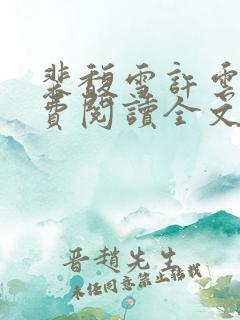 裴馥雪許雲
費閱讀全文
晋趙先生
未经同意禁止转载